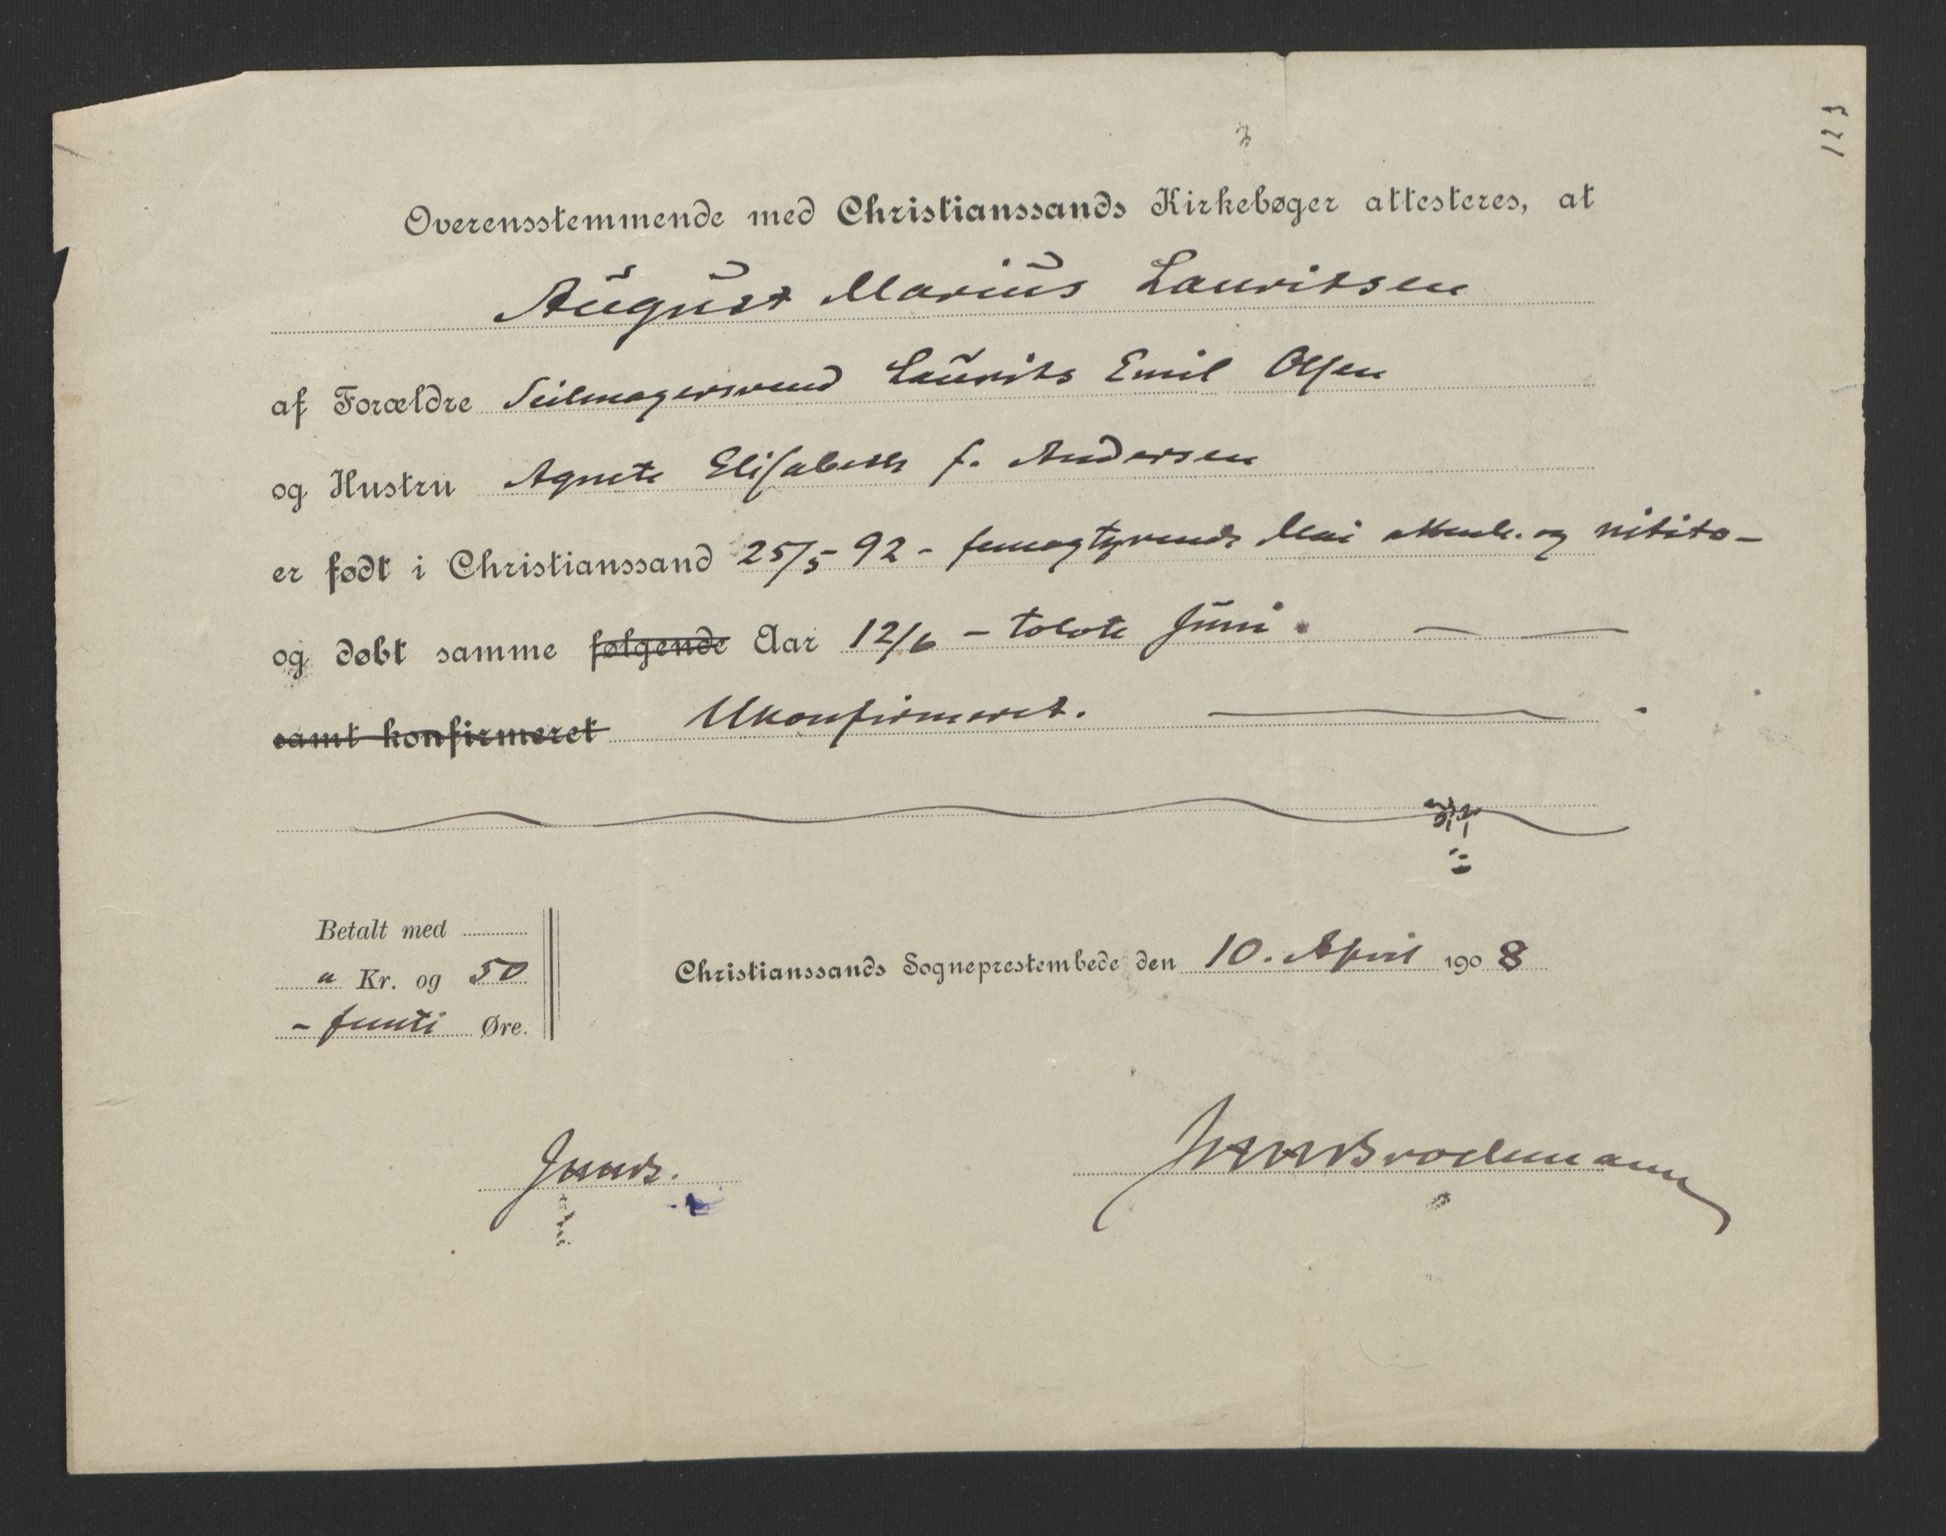 123
Overensstemmende med Christianssands Kirkebøger attesteres, at
August Marius Lauritsen
af Forældre Seilmagersvend Laurits Emil Olsen
og Hustru Agnete Elisabeth f. Andersen
er født i Christianssand 25/5 - 92 - femogtyvende Mai attenh. og nitito -
og døbt samme følgende Aar 12/6 - tolvte Juni.
samt konfirmeret Ukonfirmeret.
Betalt med
" Kr. og 50
- femti Øre.
Christianssands Sogneprestembede den 10. April 1908